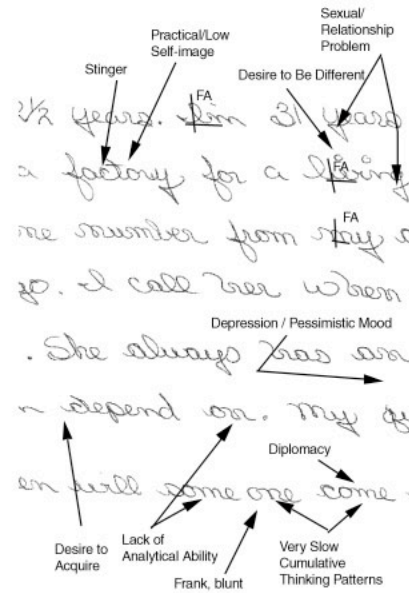 Sexual/
Relationship
Problem
Practical/Low
Self-image
Stinger
Desire to Be Different
FA
2½ years. I'm 31 years
FA
a factory for a living
FA
me number from my
go. I call her when
Depression / Pessimistic Mood
. She always has an
n depend on. My
Diplomacy
en will some one come
Desire to
Acquire
Lack of
Analytical Ability
Frank, blunt
Very Slow
Cumulative
Thinking Patterns